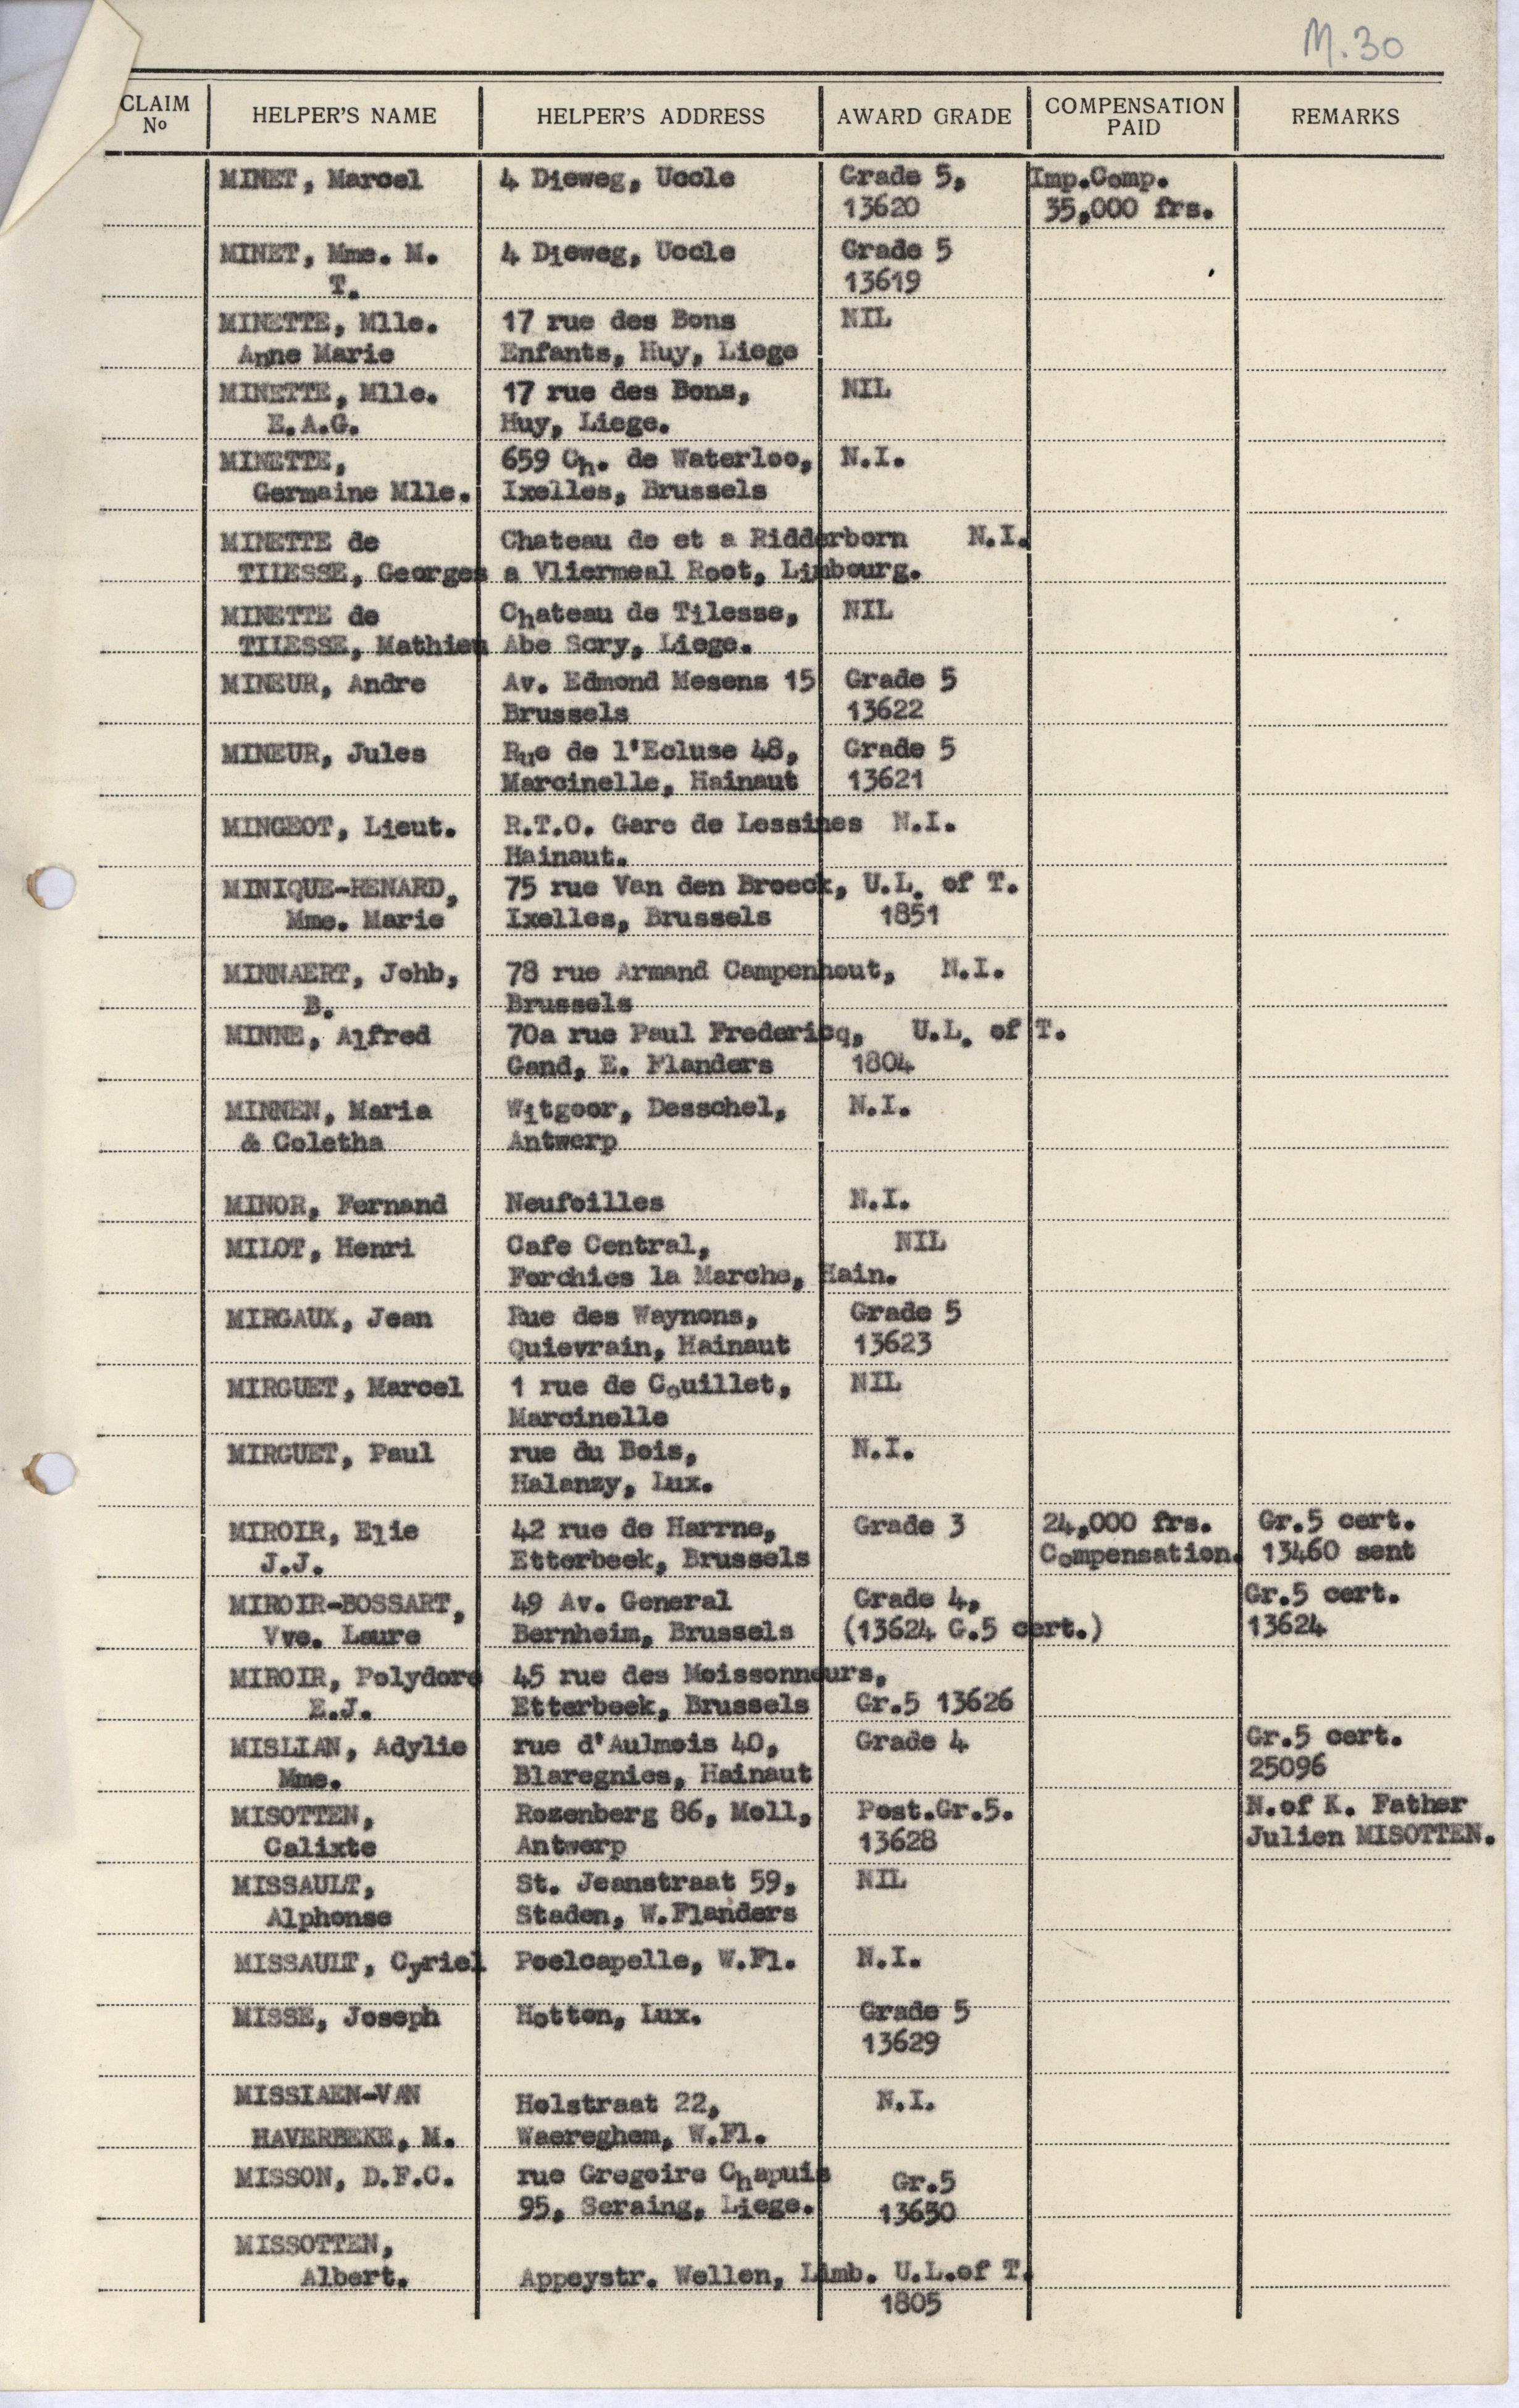 M.30
CLAIM No HELPER'S NAME HELPER'S ADDRESS AWARD GRADE COMPENSATION PAID REMARKS
MINET, Marcel 4 Dieweg, Uccle Grade 5, Imp.Comp.
13620 35,000 frs.
MINET, Mme. M. 4 Dieweg, Uccle Grade 5
T. 13619
MINETTE, Mlle. 17 rue des Bons NIL
Anne Marie Enfants, Huy, Liege
MINETTE, Mlle. 17 rue des Bons, NIL
E.A.G. Huy, Liege.
MINETTE, 659 Ch. de Waterloo, N.I.
Germaine Mlle. Ixelles, Brussels
MINETTE de Chateau de et a Ridderborn N.I.
TIIESSE, Georges a Vliermeal Root, Limbourg.
MINETTE de Chateau de Tilesse, NIL
TIIESSE, Mathieu Abe Scry, Liege.
MINEUR, Andre Av. Edmond Mesens 15 Grade 5
Brussels 13622
MINEUR, Jules Rue de l'Ecluse 48, Grade 5
Marcinelle, Hainaut 13621
MINGEOT, Lieut. R.T.O. Gare de Lessines N.I.
Hainaut.
MINIQUE-RENARD, 75 rue Van den Broeck, U.L. of T.
Mme. Marie Ixelles, Brussels 1851
MINNAERT, Johb, 78 rue Armand Campenhout, N.I.
B. Brussels
MINNE, Alfred 70a rue Paul Fredericq, U.L. of T.
Gand, E. Flanders 1804
MINNEN, Maria Witgoor, Desschel, N.I.
& Coletha Antwerp
MINOR, Fernand Neufeilles N.I.
MILOT, Henri Cafe Central, NIL
Forchies la Marche, Hain.
MIRGAUX, Jean Rue des Waynons, Grade 5
Quievrain, Hainaut 13623
MIRGUET, Marcel 1 rue de Couillet, NIL
Marcinelle
MIRGUET, Paul rue du Bois, N.I.
Halanzy, Lux.
MIROIR, Elie 42 rue de Harrne, Grade 3 24,000 frs. Gr.5 cert.
J.J. Etterbeek, Brussels Compensation. 13460 sent
MIROIR-BOSSART, 49 Av. General Grade 4, Gr.5 cert.
Vve. Laure Bernheim, Brussels (13624 G.5 cert.) 13624
MIROIR, Polydore 45 rue des Moissonneurs,
E.J. Etterbeek, Brussels Gr.5 13626
MISLIAN, Adylie rue d'Aulmois 40, Grade 4 Gr.5 cert.
Mme. Blaregnies, Hainaut 25096
MISOTTEN, Rozenberg 86, Moll, Post.Gr.5. N.of K. Father
Calixte Antwerp 13628 Julien MISOTTEN.
MISSAULT, St. Jeanstraat 59, NIL
Alphonse Staden, W.Flanders
MISSAULT, Cyriel Poelcapelle, W.Fl. N.I.
MISSE, Joseph Hotton, Lux. Grade 5
13629
MISSIAEN-VAN Holstraat 22, N.I.
HAVERBEKE, M. Waereghem, W.Fl.
MISSON, D.F.C. rue Gregoire Chapuis Gr.5
95, Seraing, Liege. 13630
MISSOTTEN,
Albert. Appeystr. Wellen, Limb. U.L.of T.
1805